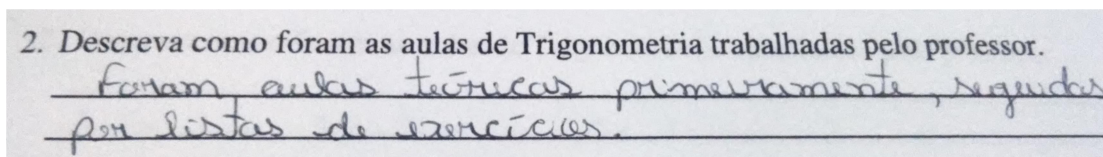 2. Descreva como foram as aulas de Trigonometria trabalhadas pelo professor.
Foram aulas teóricas primeiramente, seguidas
por listas de exercícios.